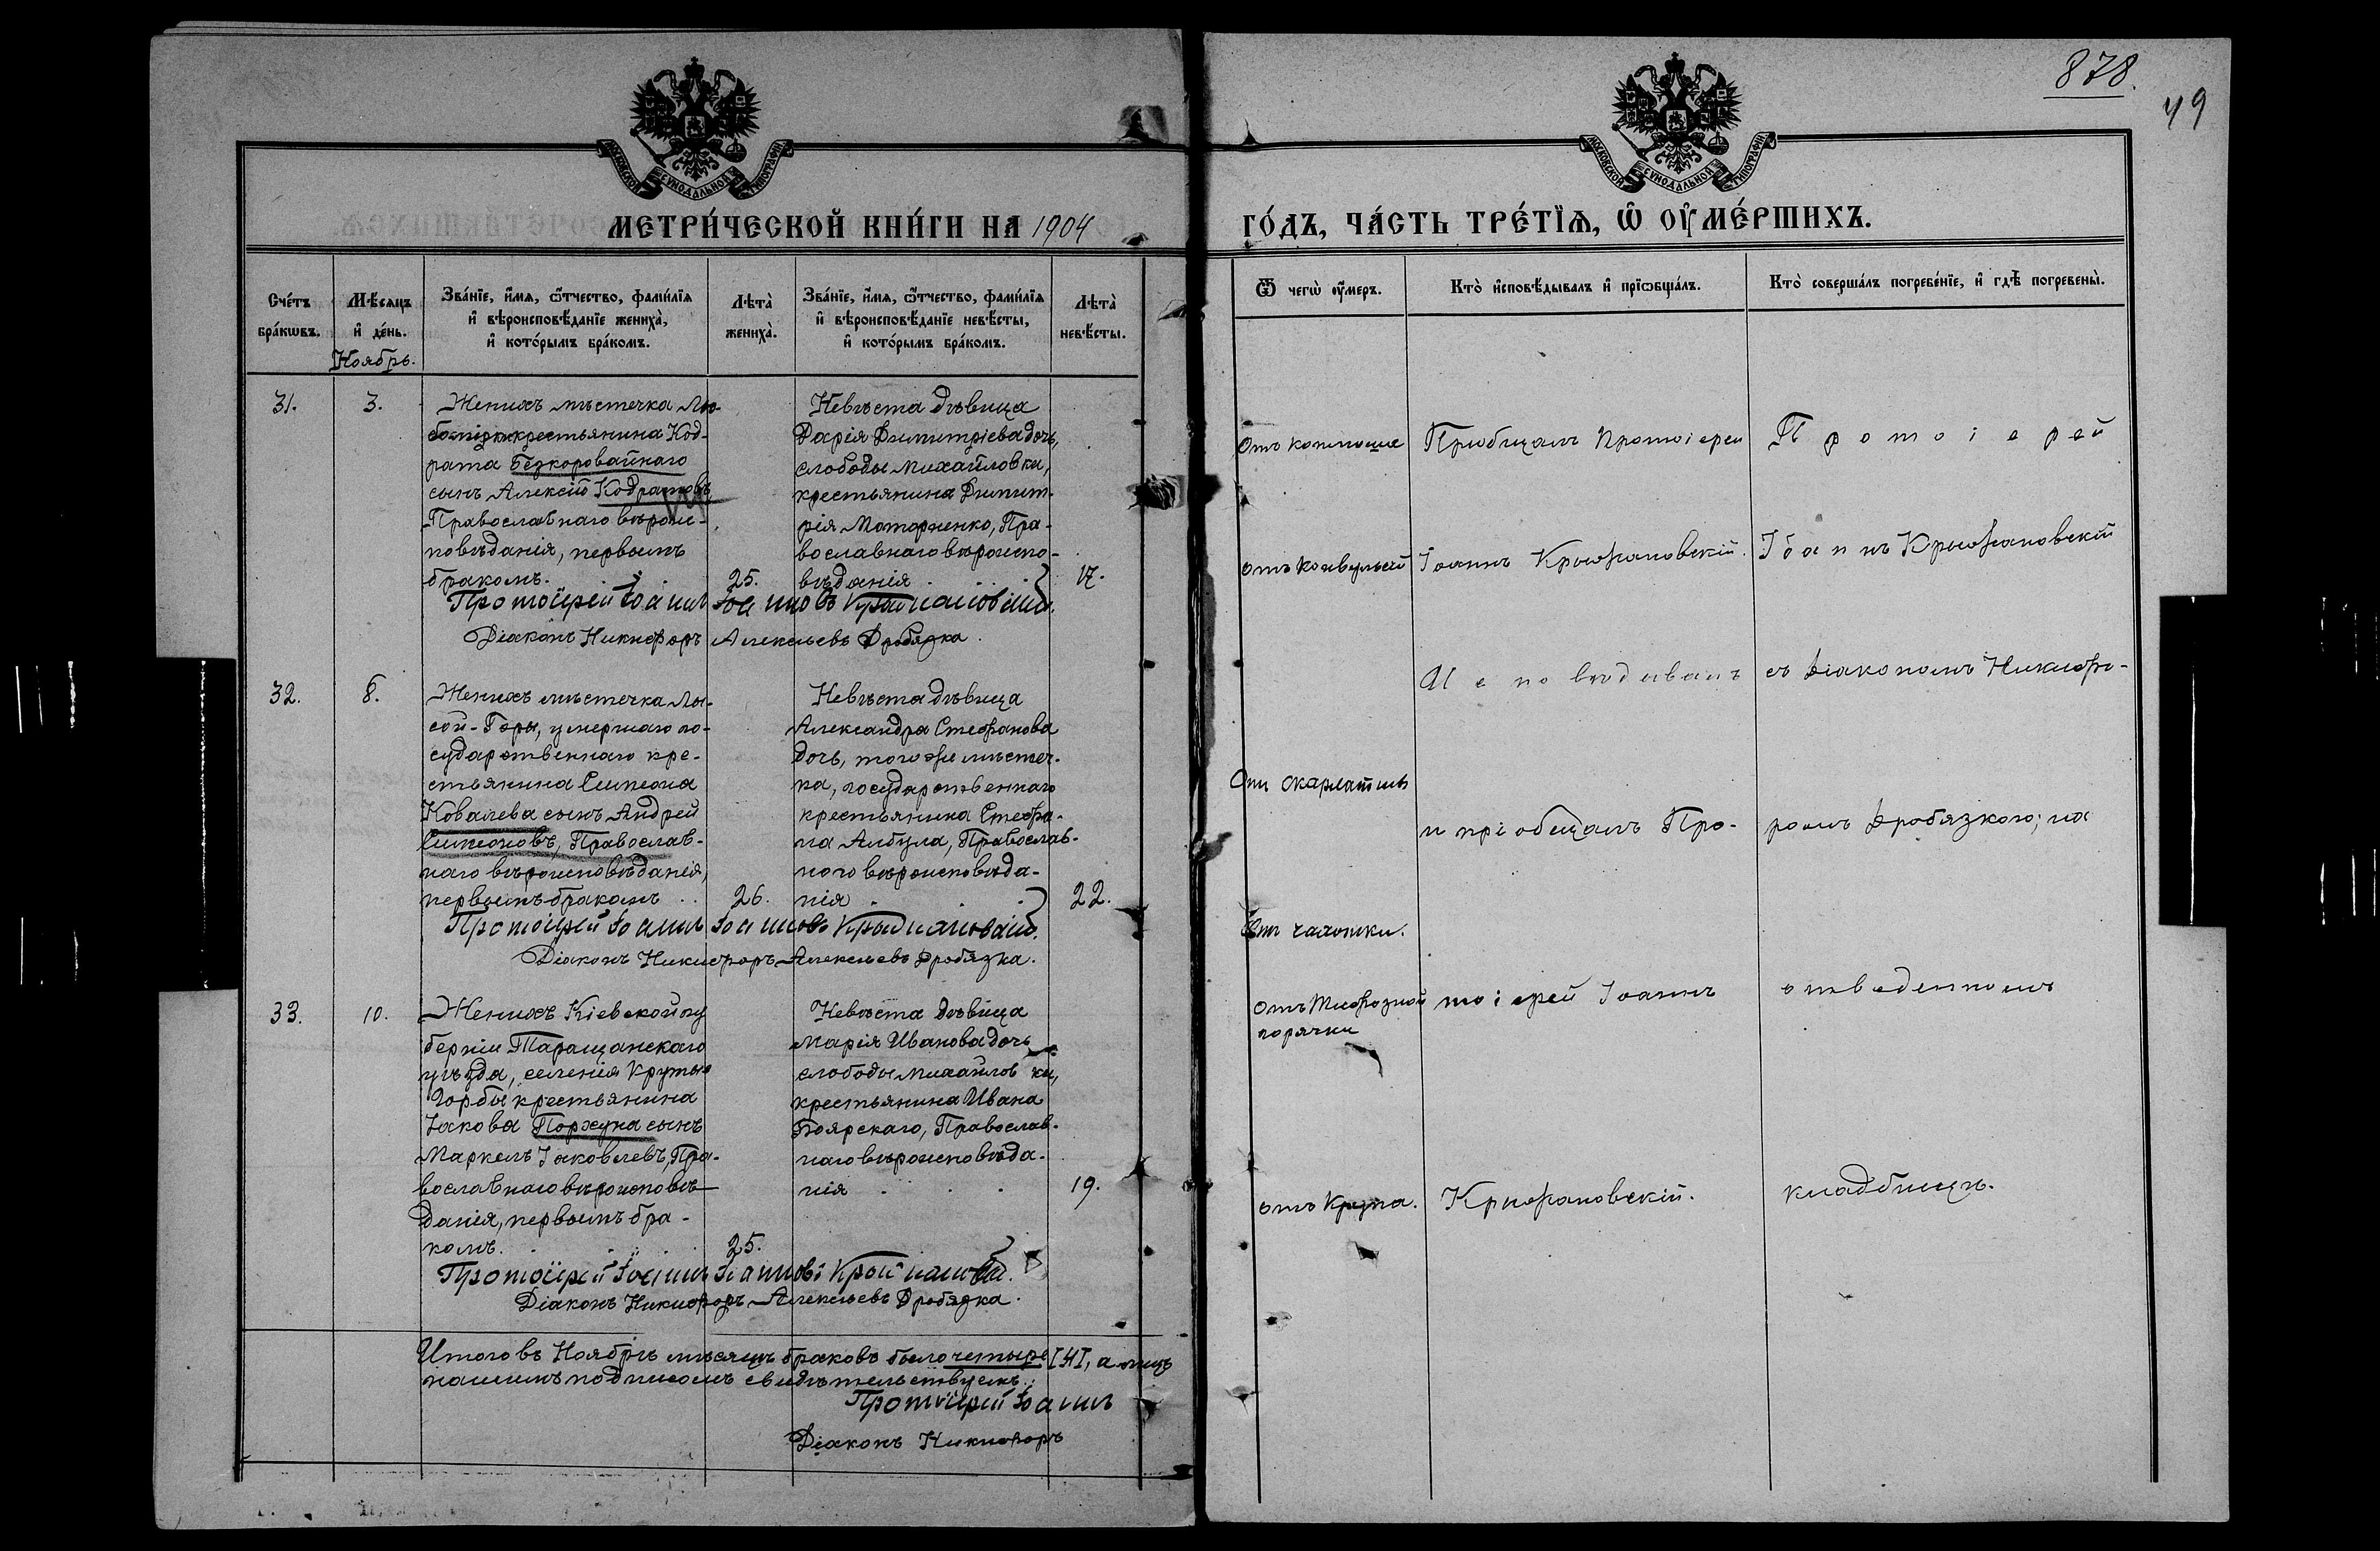 МОСКОВСКОЙ СУНОДАЛЬНОЙ ТИПОГРАФІИ
МЕТРИ́ЧЕСКОЙ КНИ́ГИ НА 1904
Сче́тъ бра́кѡвъ.
Мѣ́сяцъ и де́нь.
Ноябрь.
Зва́нїе, и́мя, ѻ҆́тчество, фами́лїя
и҆ вѣроисповѣ́данїе жениха̀,
и҆ кото́рымъ бра́комъ.
Лѣта̀
жениха̀.
Зва́нїе, и́мя, ѻ҆́тчество, фами́лїя
и҆ вѣроисповѣ́данїе невѣ́сты,
и҆ кото́рымъ бра́комъ.
Лѣта̀
невѣ́сты.
31.
3.
Женихъ мѣстечка
крестьянина Код-
рата Безкоровайнаго
сынъ Алексій Кодратовъ
Православнаго вѣроис-
повѣданія, первымъ
бракомъ.
25.
Невѣста дѣвица
Дарія Димитріева дочь,
слободы Михайловки,
крестьянина Димит-
рія Моторненко, Пра-
вославнаго вѣроиспо-
вѣданія
17.
Протоіерей Іоаннъ Іоанновъ Крыжановскій.
Діаконъ Никифоръ Алексѣевъ Дробязка.
32.
8.
Женихъ мѣстечка Лы-
сой-Горы, умершаго го-
сударственнаго кре-
стьянина Симеона
Ковалева сынъ Андрей
Симеоновъ, Православ-
наго вѣроисповѣданія,
первымъ бракомъ
26.
Невѣста дѣвица
Александра Стефанова
дочь, того же мѣстеч-
ка, государственнаго
крестьянина Стефа-
на Албула, Православ-
наго вѣроисповѣда-
нія
22.
Протоіерей Іоаннъ Іоанновъ Крыжановскій.
Діаконъ Никифоръ Алексѣевъ Дробязка.
33.
10.
Женихъ Кіевской гу
берніи Таращанскаго
уѣзда, селенія Крутые
Горбы крестьянина
Іакова Поржуна сынъ
Маркелъ Іаковлевъ, Пра-
вославнаго вѣроисповѣ-
данія, первымъ бра-
комъ.
25.
Невѣста дѣвица
Марія Иванова дочь
слободы Михайловки,
крестьянина Ивана
Боярскаго, Православ-
наго вѣроисповѣда-
нія
19.
Протоіерей Іоаннъ Іоанновъ Крыжановскій.
Діаконъ Никифоръ Алексѣевъ Дробязка.
Итого въ Ноябрѣ мѣсяцѣ браковъ было четыре [4], а
нашимъ подписомъ свидѣтельствуемъ:
Протоіерей Іоаннъ
Діаконъ Никифоръ
878.
49
МОСКОВСКОЙ СУНОДАЛЬНОЙ ТИПОГРАФІИ
ГО́ДЪ, ЧА́СТЬ ТРЕ́ТЇѦ, Ѡ҆ ОУ҆МЕ́РШИХЪ.
Ѿ чегѡ̀ ᲂу҆́меръ.
Кто̀ и҆сповѣ́дывалъ и҆ прїѡбща́лъ.
Кто̀ соверша́лъ погребе́нїе, и҆ гдѣ̀ погребены̀.
Отъ коклюша
Пріобщалъ Протоіерей
Протоіерей
Отъ конвульсій
Іоаннъ Крыжановскій.
Іоаннъ Крыжановскій
Исповѣдывалъ
съ Діакономъ Никифо-
Отъ скарлатины
и пріобщалъ Про-
ромъ Дробязкою; на
Отъ чахотки.
Отъ тифозной
горячки
тоіерей Іоаннъ
отведенномъ
Отъ крупа.
Крыжановскій.
кладбищѣ.